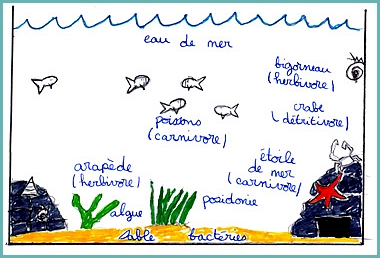 eau de mer
bigorneau
(herbivore)
crabe
(détritivore)
poissons
(carnivore)
étoile
de mer
(carnivore)
arapède
(herbivore)
algue
posidonie
sable bactéries